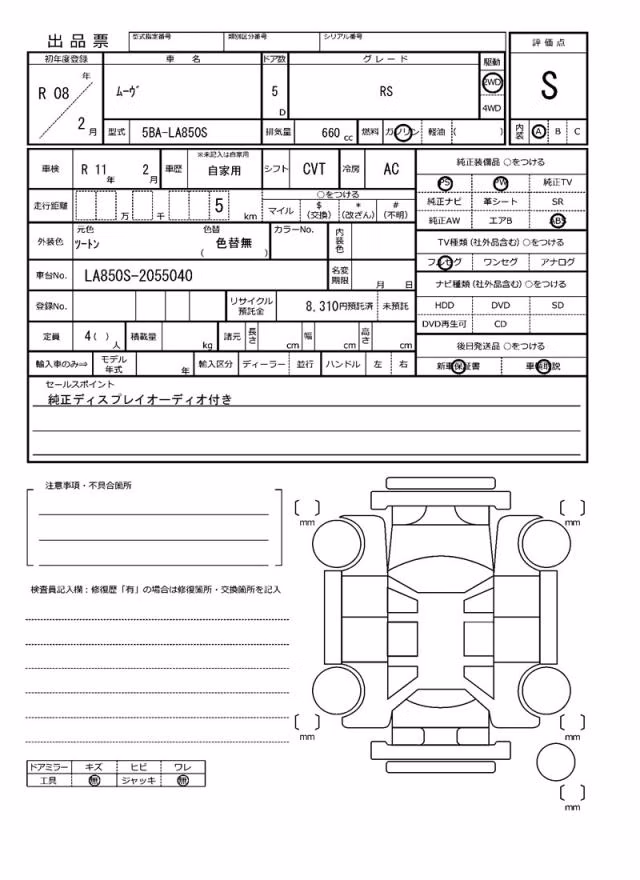 出品票 型式指定番号 類別区分番号 シリアル番号
初年度登録 車名 ドア数 グレード 駆動 評価点
R 08 年 2 月 ムーヴ 5 D RS 2WD 4WD S
型式 5BA-LA850S 排気量 660 cc 燃料 ガソリン 軽油 ( ) 内装 A B C
車検 R 11 年 2 月 車歴 ※未記入は自家用 自家用 シフト CVT 冷房 AC
純正装備品 ○をつける
PS PW 純正TV
純正ナビ 革シート SR
純正AW エアB ABS
走行距離 万 千 5 km ○をつける
マイル $ (交換) * (改ざん) # (不明)
TV種類 (社外品含む) ○をつける
フルセグ ワンセグ アナログ
外装色 元色 ツートン 色替 色替無 ( ) カラーNo. 内装色
ナビ種類 (社外品含む) ○をつける
HDD DVD SD
DVD再生可 CD
車台No. LA850S-2055040 名変期限 月 日
登録No. リサイクル預託金 8,310円預託済 未預託
定員 4 ( ) 人 積載量 kg 諸元 長さ cm 幅 cm 高さ cm
後日発送品 ○をつける
新車保証書 車輌取説
輸入車のみ⇒ モデル年式 年 輸入区分 ディーラー 並行 ハンドル 左 右
セールスポイント
純正ディスプレイオーディオ付き
注意事項・不具合箇所
検査員記入欄：修復歴「有」の場合は修復箇所・交換箇所を記入
mm mm
mm mm
mm
ドアミラー キズ ヒビ ワレ
工具 無 ジャッキ 無